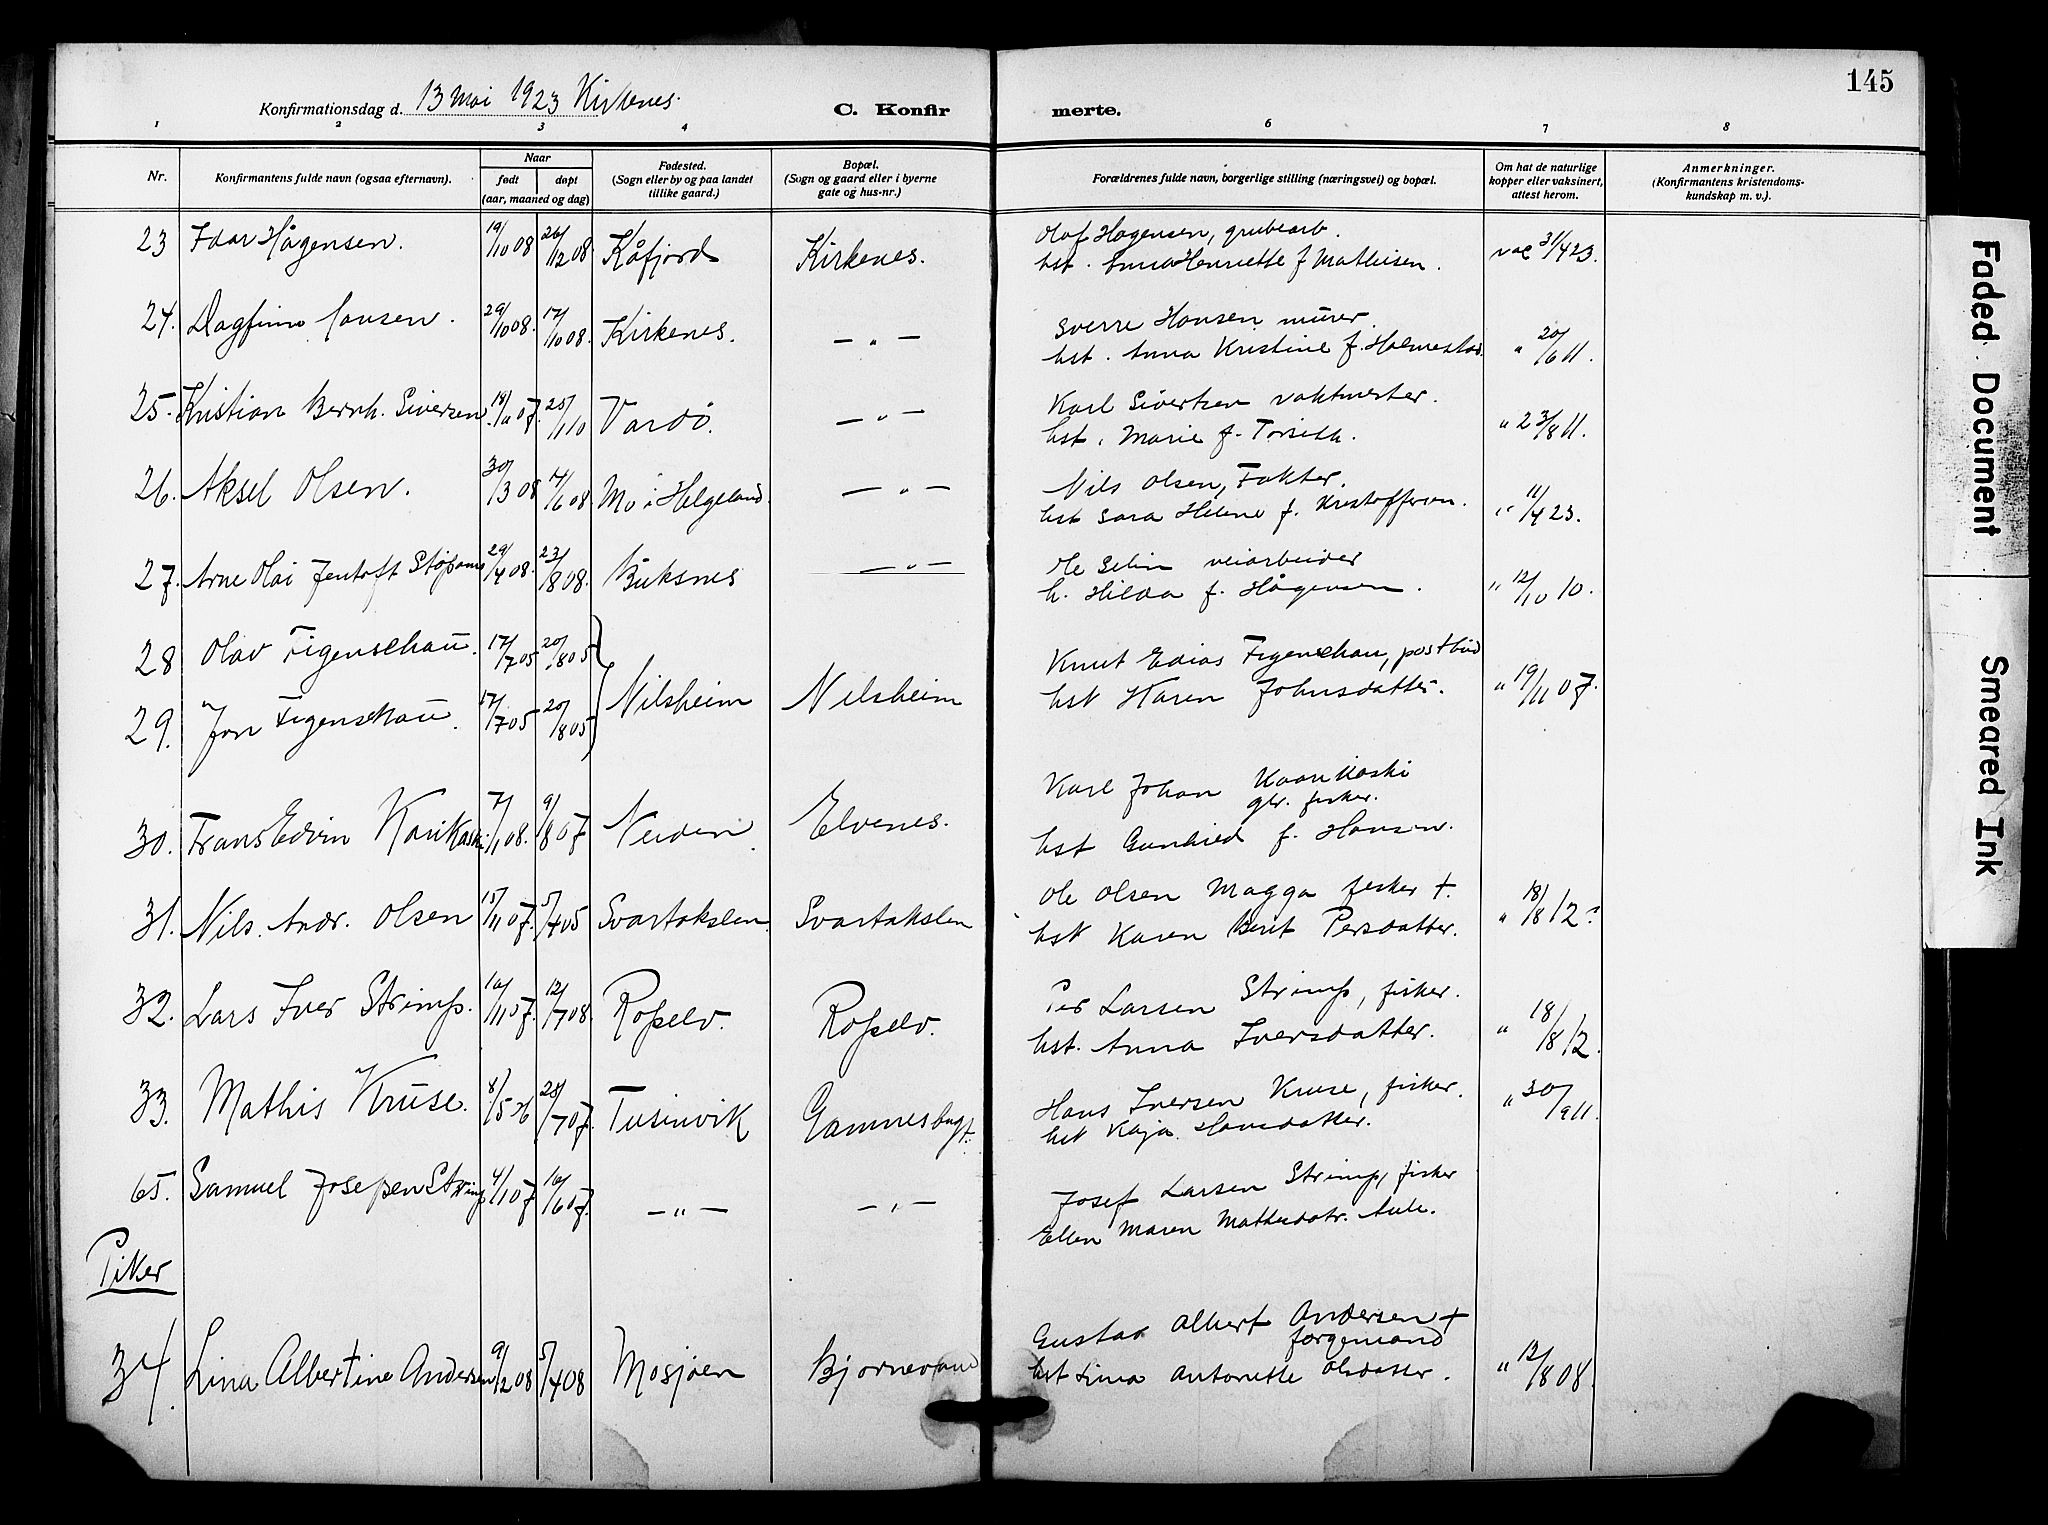 145
Konfirmationsdag d. 13 Mai 1923 Kirkenes.
C. Konfirmerte.
1 2 3 4 5 6 7 8
Nr.
Konfirmantens fulde navn (ogsaa efternavn).
Naar
født døpt
(aar, maaned og dag)
Fødested.
(Sogn eller by og paa landet
tillike gaard.)
Bopæl.
(Sogn og gaard eller i byerne
gate og hus-nr.)
Forældrenes fulde navn, borgerlige stilling (næringsvei) og bopæl.
Om hat de naturlige
kopper eller vaksinert,
attest herom.
Anmerkninger.
(Konfirmantens kristendoms-
kundskap m. v.).
23 Idar Hågensen. 19/10 08 26/12 08 Kåfjord Kirkenes. Olaf Hagensen, grubearb. vac 31/4 23.
hst. Anna Henriette f Mathisen.
24. Dagfinn Hansen. 29/10 08. 17/10 08. Kirkenes. — " — Sverre Hansen murer. " 20/6 11.
hst. Anna Kristine f. Holmestad.
25. Kristian Bernh. Siversen 18/ 07. 25/1 10 Vardö. — " — Karl Sivertsen vaktmester. " 23/8 11.
hst. Marie f. Torseth.
26. Aksel Olsen. 30/3 08 4/6 08 Mo i Helgeland. — " — Nils Olsen, Fakter. " 11/4 23.
hst Sara Helene f. Kristoffersen.
27. Arne Olai Jentoft 29/4 08. 23/8 08. Buksnes — " — Ole Selin veiarbeider " 12/10 10.
h. Hilda f. Hågensen.
28 Olav Figenschau. 17/7 05 20/8 05
29. Jon Figenschau. 17/7 05 20/8 05 Nilsheim Nilsheim Knut Edias Figenschau, postbud " 19/11 07.
hst Karen Johnsdatter.
30. Frans Edvin Karikoski 7/1 08. 9/8 07 Neiden Elvenes. Karl Johan
gbr. fisker.
hst f. Hansen.
31. Nils. Andr. Olsen 15/11 07. 5/4 05 Svartakslen. Svartakslen Ole Olsen Magga fisker +. " 18/8 12
hst Karen Berit Persdatter.
32. Lars Iver Strimp. 10/11 07. 12/7 08. Ropelv. Ropelv. Per Larsen Strimp, fisker. " 18/8 12.
hst. Anna Iversdatter.
33. Mathis Kruse. 8/5 28/7 07. Tusinvik Gamnesbugt. Hans Iversen Kruse, fisker. " 30/9 11.
hst Kaja Hansdatter.
65. Samuel Josepen Strimp 4/1 07 16/6 07. — " — — " — Josef Larsen Strimp, fisker
Ellen Maren
Piker
34. Lina Albertine Andersen 9/2 08 5/4 08 Mosjøen Bjornevand Gustav Albert Andersen + " 12/8 08.
forgemand
hst Lina Antonette Olsdatter.
Faded Document
Smeared Ink